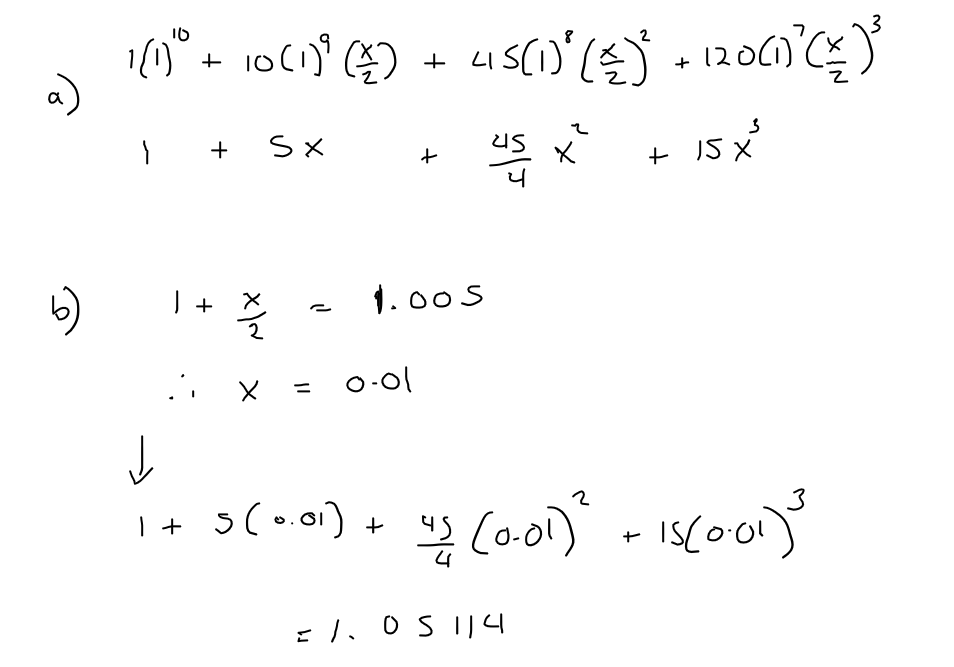 a) 1(1)^10 + 10(1)^9 (x/2) + 45(1)^8 (x/2)^2 + 120(1)^7 (x/2)^3
1 + 5x + 45/4 x^2 + 15x^3
b) 1 + x/2 = 1.005
∴ x = 0.01
↓
1 + 5(0.01) + 45/4 (0.01)^2 + 15(0.01)^3
= 1.05114